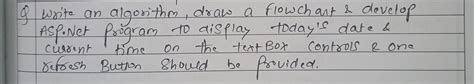 Q Write an algorithm, draw a flowchart & develop
ASP.Net Program to display today's date &
current time on the textBox controls & one
refresh Button Should be Provided.